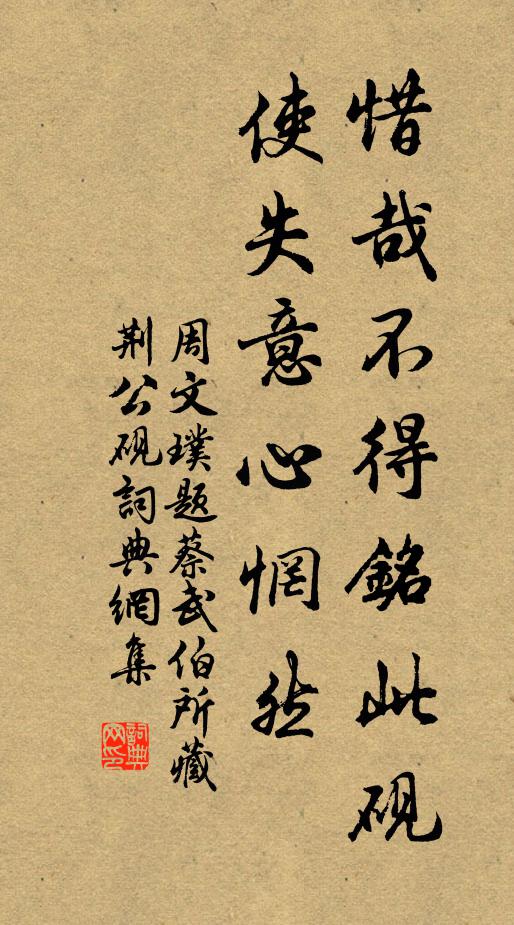 惜哉不得銘此硯
使失意心惘然
周文璞題蔡武伯所藏
荆公硯詞典網集
詞典網印